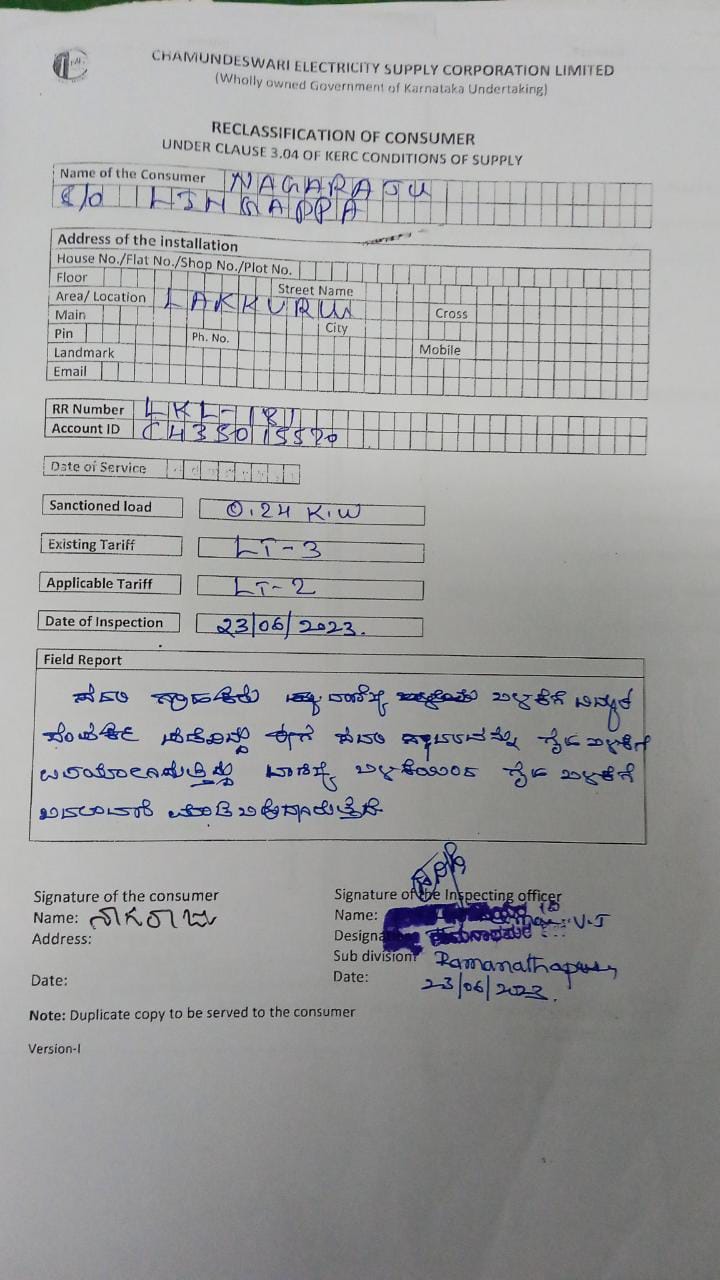 CHAMUNDESWARI ELECTRICITY SUPPLY CORPORATION LIMITED
(Wholly owned Government of Karnataka Undertaking)
RECLASSIFICATION OF CONSUMER
UNDER CLAUSE 3.04 OF KERC CONDITIONS OF SUPPLY
Name of the Consumer NAGARAJU
S/O LINGAPPA
Address of the installation
House No./Flat No./Shop No./Plot No.
Floor Street Name
Area/ Location LAKKURU
Main City Cross
Pin Ph. No.
Landmark Mobile
Email
RR Number LKL-181
Account ID
Date of Service
Sanctioned load 0.24 K.W
Existing Tariff LT-3
Applicable Tariff LT-2
Date of Inspection 23/06/2023.
Field Report
ಸದರಿ ಗ್ರಾಹಕರು ವಾಣಿಜ್ಯ ಬಳಕೆಗೆ ವಿದ್ಯುತ್
ಈಗ ಸದರಿ ಗೃಹ ಬಳಕೆಗೆ
ವಾಣಿಜ್ಯ ಬಳಕೆಯಿಂದ ಗೃಹ ಬಳಕೆಗೆ
Signature of the consumer
Name: ನಾಗರಾಜು
Address:
Date:
Signature of the Inspecting officer
Name: V.J
Sub division: Ramanathapura
Date: 23/06/2023.
Note: Duplicate copy to be served to the consumer
Version-I